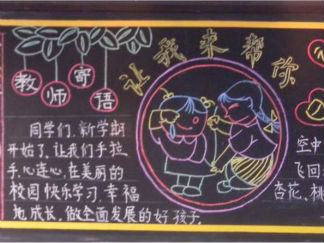 让我来帮你
教师寄语
同学们,新学期
开始了,让我们手拉
手,心连心,在美丽的
校园快乐学习,幸福
地成长,做全面发展的好孩子.
空中
飞回
杏花、桃